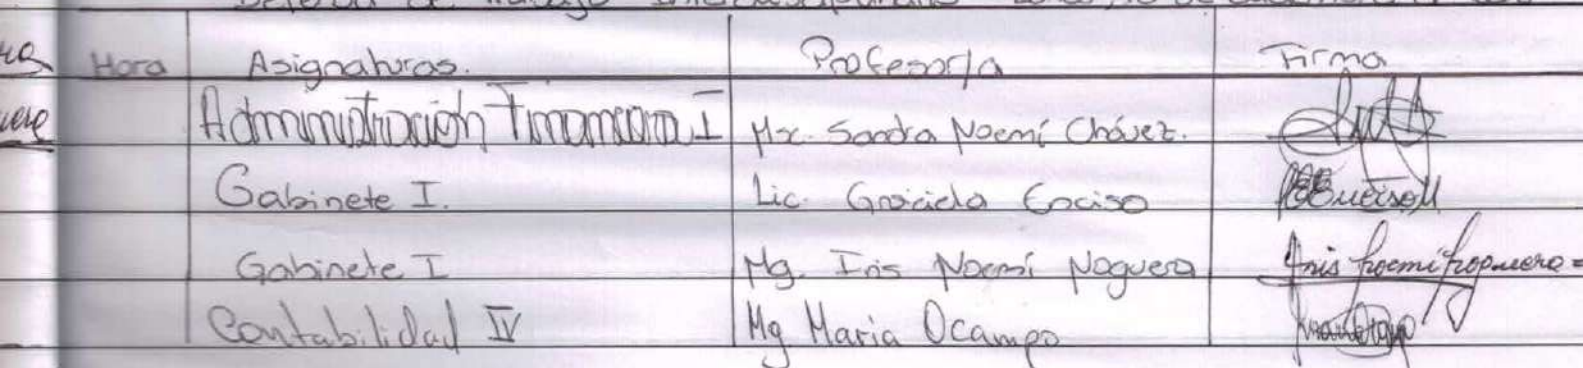 Defensa de Trabajo Interdisciplinario
Hora Asignaturas. Profesor/a Firma
Administración Financiera I Mx. Sandra Noemí Chávez.
Gabinete I. Lic. Graciela Enciso
Gabinete I Mg. Iris Noemí Noguera Iris Noemi Noguera
Contabilidad IV Mg Maria Ocampo